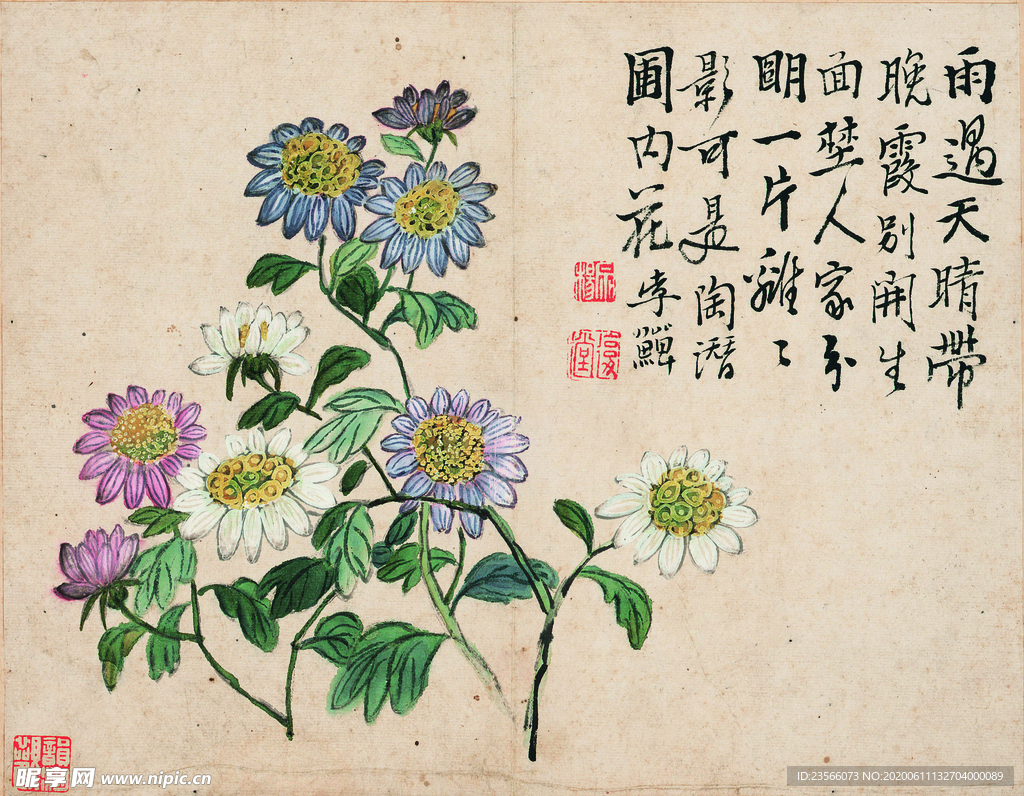 雨過天晴帶
晚霞別開生
面埜人家分
朙一片離〻
影可是陶潛
圃内花李鱓
昵享网 www.nipic.cn
ID:23566073 NO:20200611132704000089